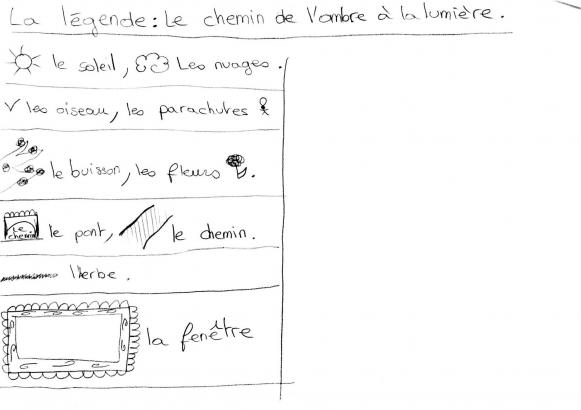 La légende : Le chemin de l'ombre à la lumière.
le soleil, Les nuages.
les oiseau, les parachutes
le buisson, les fleurs.
Le chemin le pont, le chemin.
l'herbe.
la fenêtre